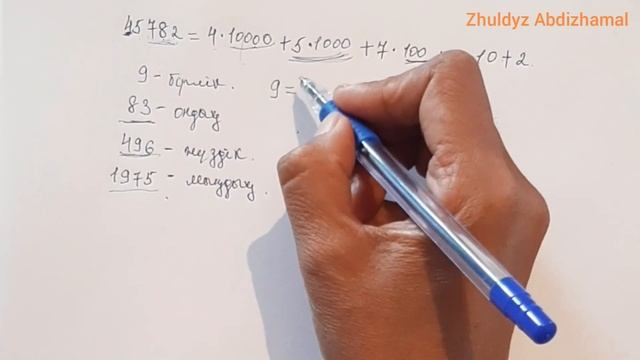 Zhuldyz Abdizhamal
45782 = 4·10000 + 5·1000 + 7·100 10 + 2.
9 - бірлік. 9 =
83 - ондық
496 - жүздік.
1975 - мыңдық